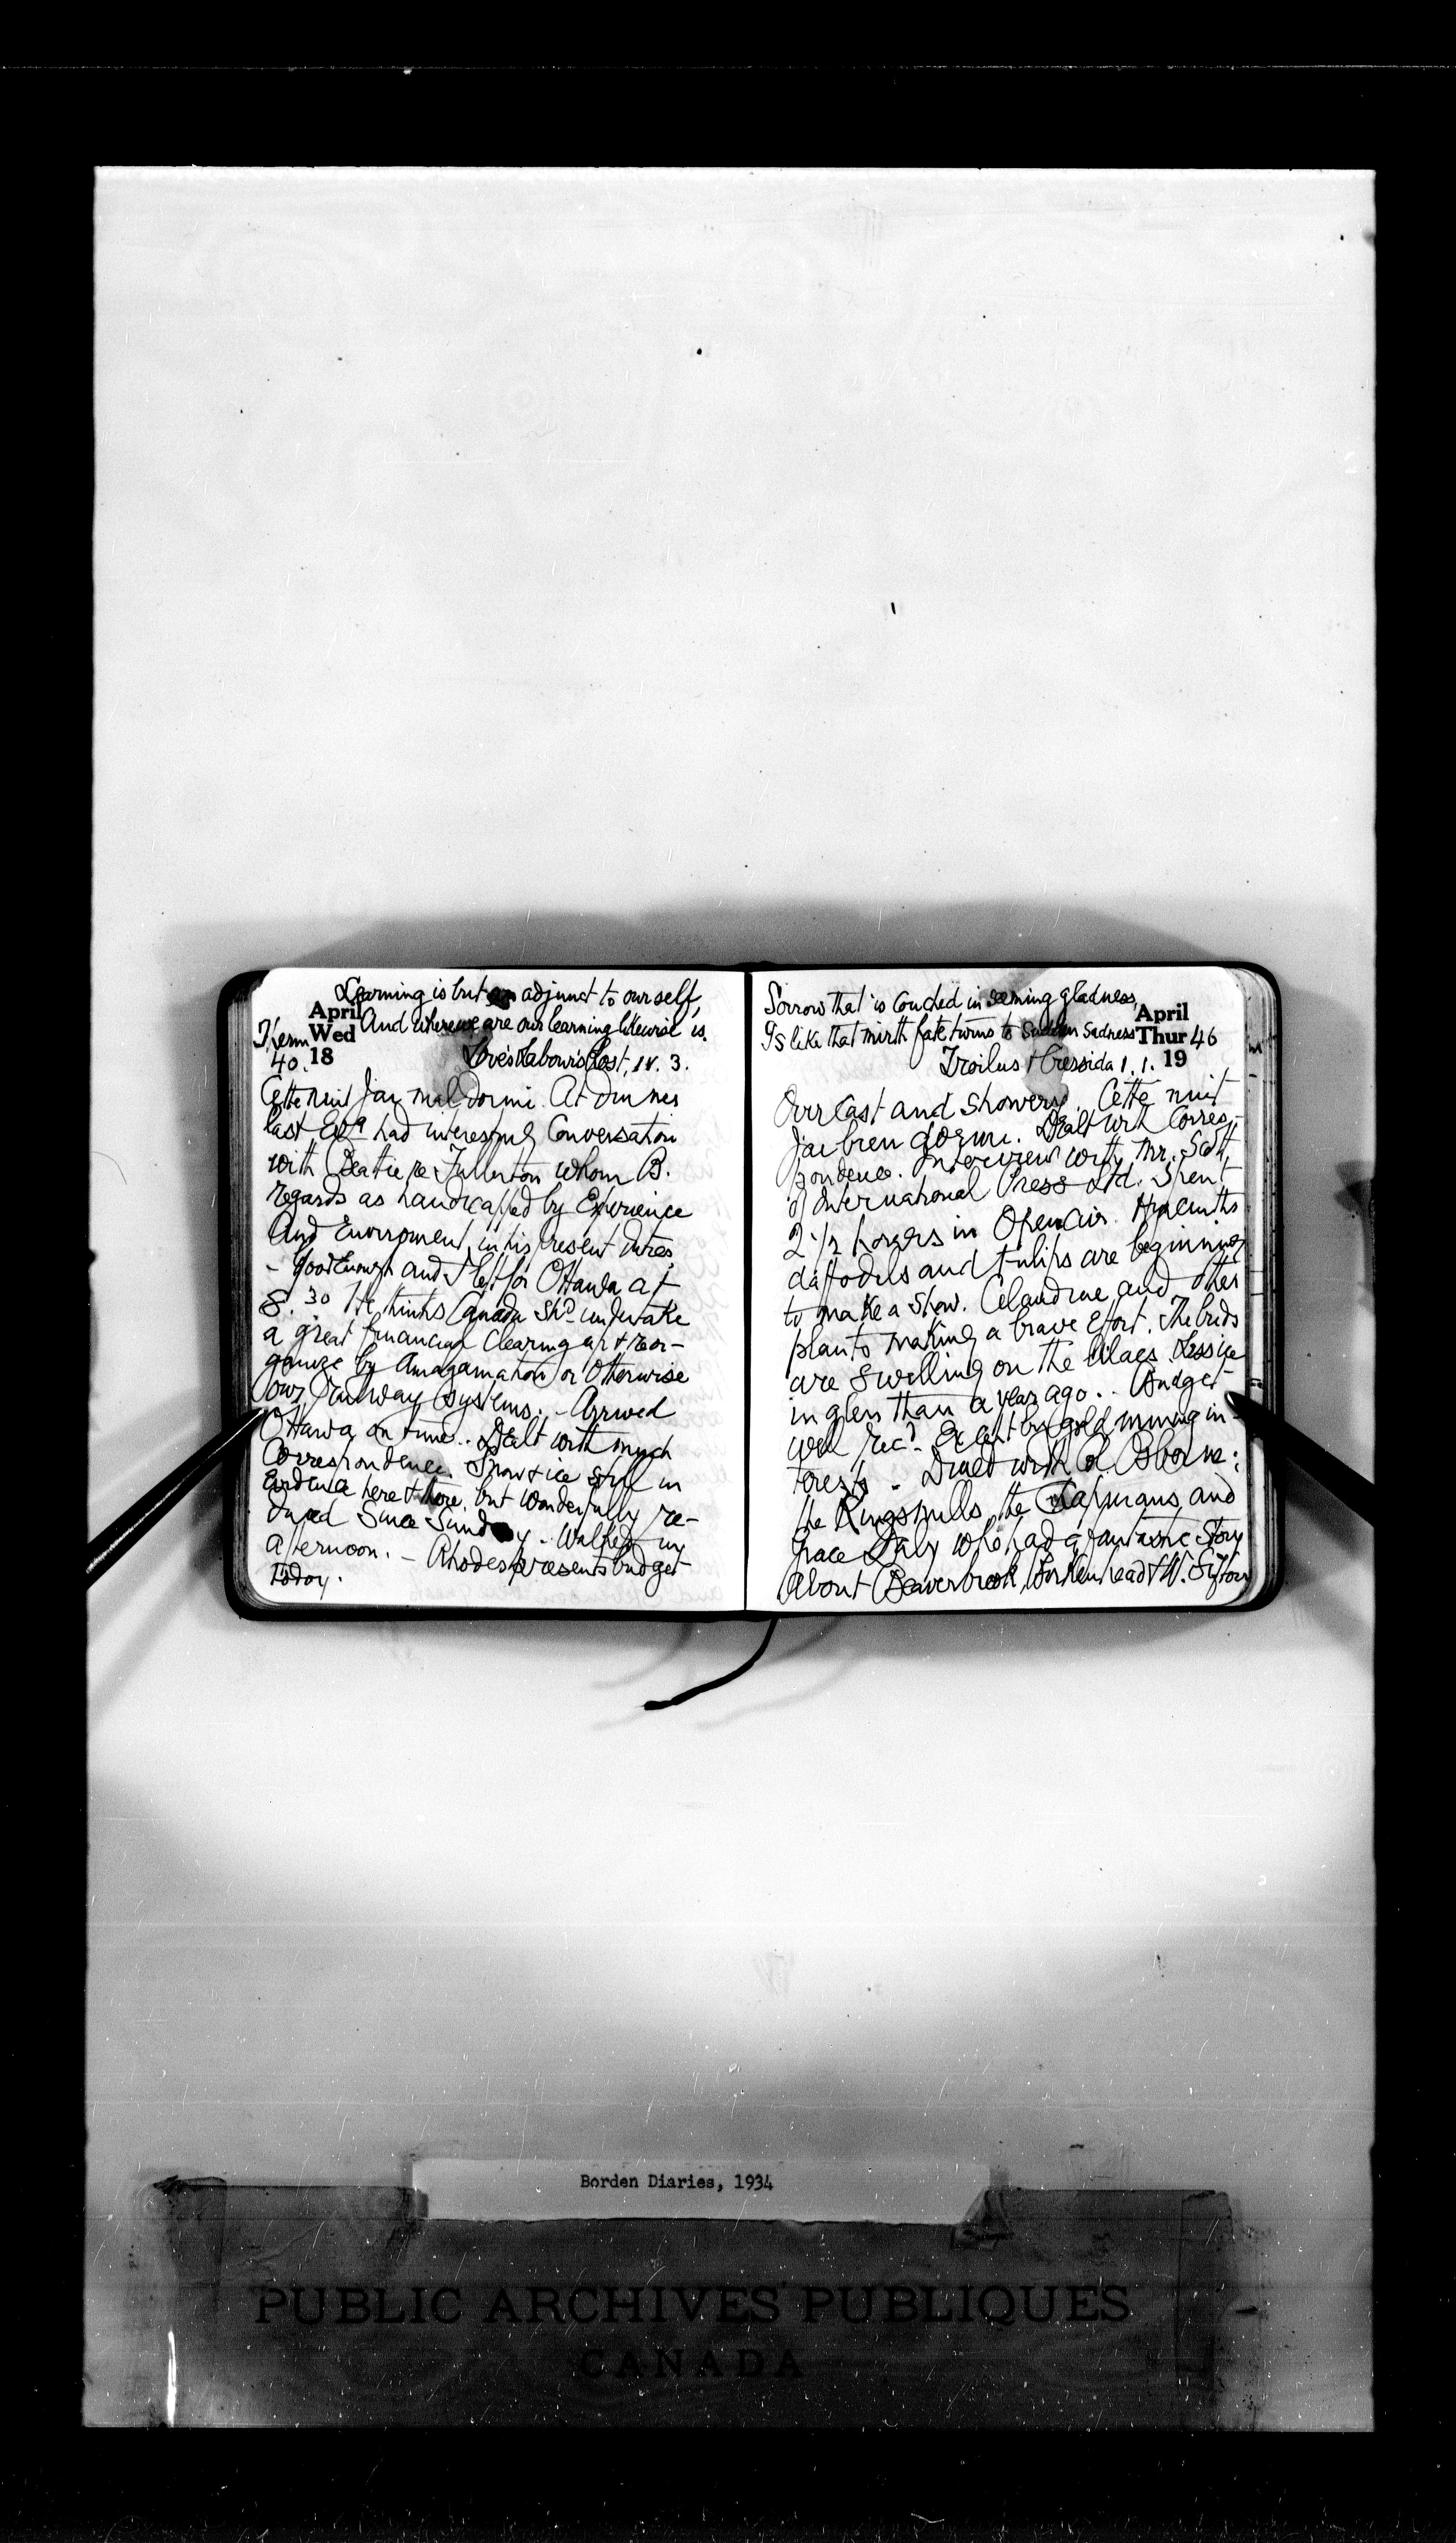 Learning is but an adjunct to ourself,
April And where we are our learning likewise is.
Therm Wed
40. 18 Love's Labour's Lost, IV. 3.
Cette nuit j'ai mal dormi. At dinner
last Evg had interesting Conversation
with Beatie re Fullerton whom B.
regards as handicapped by Experience
and Enviroment in his present duties
- Goodenough and I left for Ottawa at
8.30 He thinks Canada shd undertake
a great financial clearing up & reor-
ganize by Amagamation or Otherwise
our railway systems. - Arrived
Ottawa on time. Dealt with much
Correspondence. Snow & ice still in
Evidence here & there, but wonderfully re-
duced Since Sunday. Walked in
afternoon. - Rhodes presents budget
today.
Sorrow that is couched in seeming gladness,
Is like that mirth fate turns to Sudden Sadness
April
Thur 46
Troilus & Cressida 1. 1. 19
Overcast and showery. Cette nuit
j'ai bien dormi. Dealt with Corres-
pondence. Interview with Mr. Scott,
of International Press Ltd. Spent
2 1/2 hours in Open air. Hyacinths
daffodils and tulips are beginning
to make a Show. Celandine and other
plants making a brave Effort. The buds
are swelling on the lilacs. Less ice
in glen than a year ago.. Budget
well recd. Except by gold mining in-
terests. - Dined with Col. Osborne;
the Kingsmills, the and
Grace Daly who had a fantastic Story
about Beaverbrook, Birkenhead & W. Sifton
Borden Diaries, 1934
PUBLIC ARCHIVES PUBLIQUES
CANADA